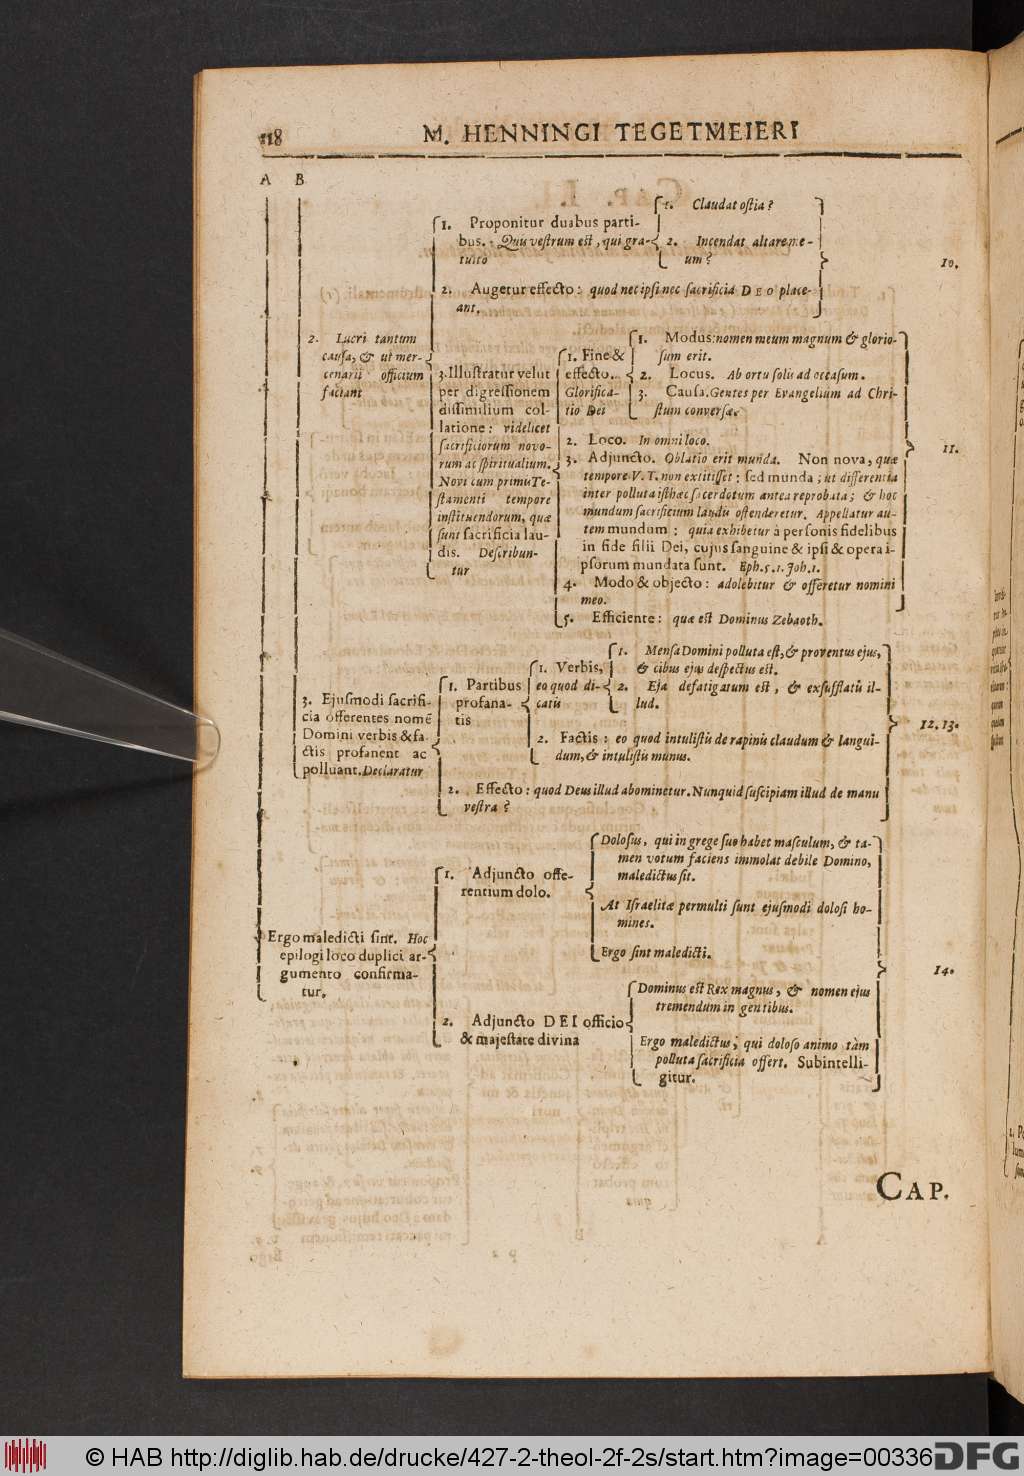 118
M. HENNINGI TEGETMEIERI
A B
1. Claudat ostia?
1. Proponitur duabus parti-
bus. Quis vestrum est, qui gra-
tuitò
2. Incendat altare me-
um?
10.
2. Augetur effecto: quod nec ipsi nec sacrificia DEO place-
ant.
2. Lucri tantum
causa, & ut mer-
cenarii officium
faciant
3. Illustratur velut
per digressionem
dissimilium col-
latione: videlicet
sacrificiorum novo-
rum ac spiritualium.
Novi cum primis Te-
stamenti tempore
instituendorum, quæ
sunt sacrificia lau-
dis. Describun-
tur
1. Fine &
effecto.
Glorifica-
tio Dei
1. Modus: nomen meum magnum & glorio-
sum erit.
2. Locus. Ab ortu solis ad occasum.
3. Causa. Gentes per Evangelium ad Chri-
stum conversæ.
2. Loco. In omni loco.
3. Adjuncto. Oblatio erit munda. Non nova, quæ
tempore V. T. non extitisset: sed munda; ut differentia
inter polluta isthæc sacerdotum antea reprobata; & hoc
mundum sacrificium laudis ostenderetur. Appellatur au-
tem mundum: quia exhibetur à personis fidelibus
in fide filii Dei, cujus sanguine & ipsi & opera i-
psorum mundata sunt. Eph. 5. 1. Joh. 1.
11.
4. Modo & objecto: adolebitur & offeretur nomini
meo.
5. Efficiente: quæ est Dominus Zebaoth.
3. Ejusmodi sacrifi-
cia offerentes nomē
Domini verbis & fa-
ctis profanent ac
polluant. Declaratur
1. Partibus
profana-
tis
1. Verbis,
eo quod di-
catis
1. Mensa Domini polluta est, & proventus ejus,
& cibus ejus despectus est.
2. Eja defatigatum est, & exsufflatis il-
lud.
2. Factis: eo quod intulistis de rapinis claudum & langui-
dum, & intulistis munus.
12. 13.
2. Effecto: quod Deus illud abominetur. Nunquid suscipiam illud de manu
vestra?
Ergo maledicti sint. Hoc
epilogi loco duplici ar-
gumento confirma-
tur.
1. Adjuncto offe-
rentium dolo.
Dolosus, qui in grege suo habet masculum, & ta-
men votum faciens immolat debile Domino,
maledictus sit.
At Israelitæ permulti sunt ejusmodi dolosi ho-
mines.
Ergo sint maledicti.
14.
2. Adjuncto DEI officio
& majestate divina
Dominus est Rex magnus, & nomen ejus
tremendum in gentibus.
Ergo maledictus, qui doloso animo tàm
polluta sacrificia offert. Subintelli-
gitur.
CAP.
© HAB http://diglib.hab.de/drucke/427-2-theol-2f-2s/start.htm?image=00336
DFG